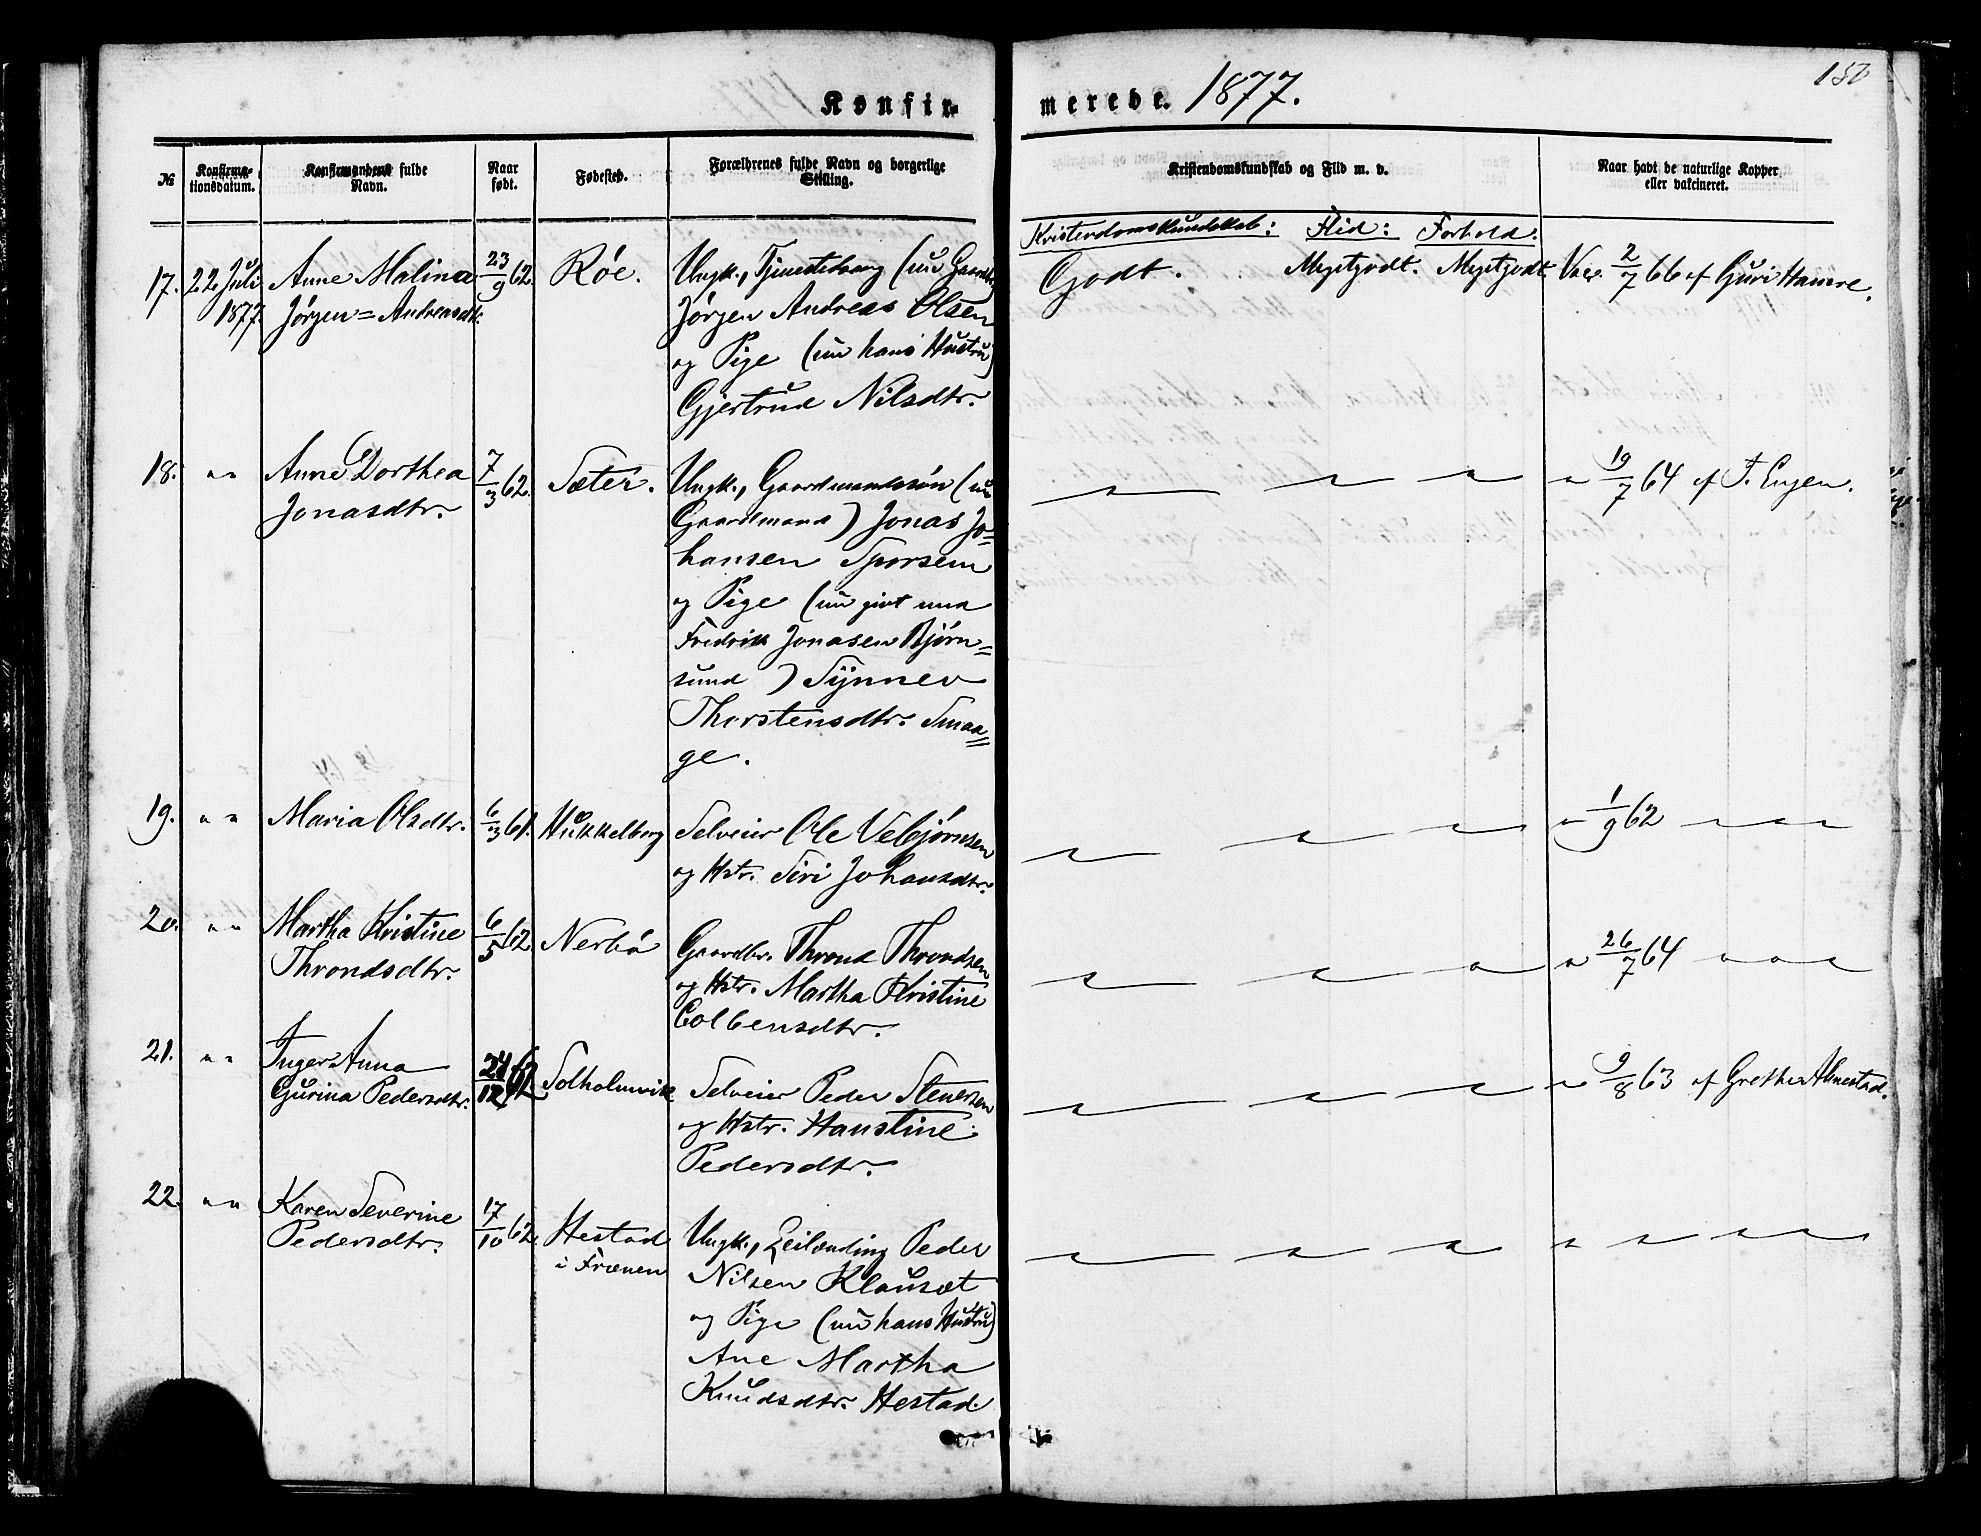 150
Konfir-
merede. 1877.
№
Konfirma-
tionsdatum.
Konfirmandens fulde
Navn.
Naar
født.
Fødested.
Forældrenes fulde Navn og borgerlige
Stilling.
Kristendomskundskab og Flid m. v.
Naar havt de naturlige Kopper
eller vakcineret.
Kristendomskundskab: Flid: Forhold:
17. 22 Juli
1877.
Anne Malina
Jørgen=Andreasdtr.
23/9 62.
Røe.
Ungk., Tjenestedreng (nu Gaardbr.)
Jørgen Andreas Olsen
og Pige (nu hans Hustru)
Gjertrud Nilsdtr.
Godt. Megetgodt. Megetgodt. Vac. 2/7 66 af Guri Hamre.
18. " "
Anne Dorthea
Jonasdtr.
7/3 62.
Sæter.
Ungk., Gaardmandssøn (nu
Gaardmand) Jonas Jo=
hansen Sporsem
og Pige (nu givt med
Fredrik Jonasen Bjørn=
sund) Synnev
Thorstensdtr. Smaa=
ge.
" " " " 19/7 64 af T. Engen.
19. " "
Maria Olsdtr.
6/3 61.
Hukkelberg
Selveier Ole Vebjørnsen
og Hstr. Siri Johansdtr.
" " " " 1/9 62 " " "
20. " "
Martha Kristine
Throndsdtr.
6/5 62
Nerbø
Gaardbr. Thrond Throndsen
og Hstr. Martha Kristine
Colbensdtr.
" " " " 26/7 64 " " "
21. " "
Inger Anna
Gurina Pedersdtr.
24/12 62
Solholmvik
Selveier Peder Stenersen
og Hstr. Hanstine
Pedersdtr.
" " " " 9/8 63 af Grethe Almestad.
22. " "
Karen Severine
Pedersdtr.
17/10 62.
Hestad
i Frænen
Ungk., Leilænding Peder
Nilsen Klauset
og Pige (nu hans Hustru)
Ane Martha
Knudsdtr. Hestad.
" " " " " " "